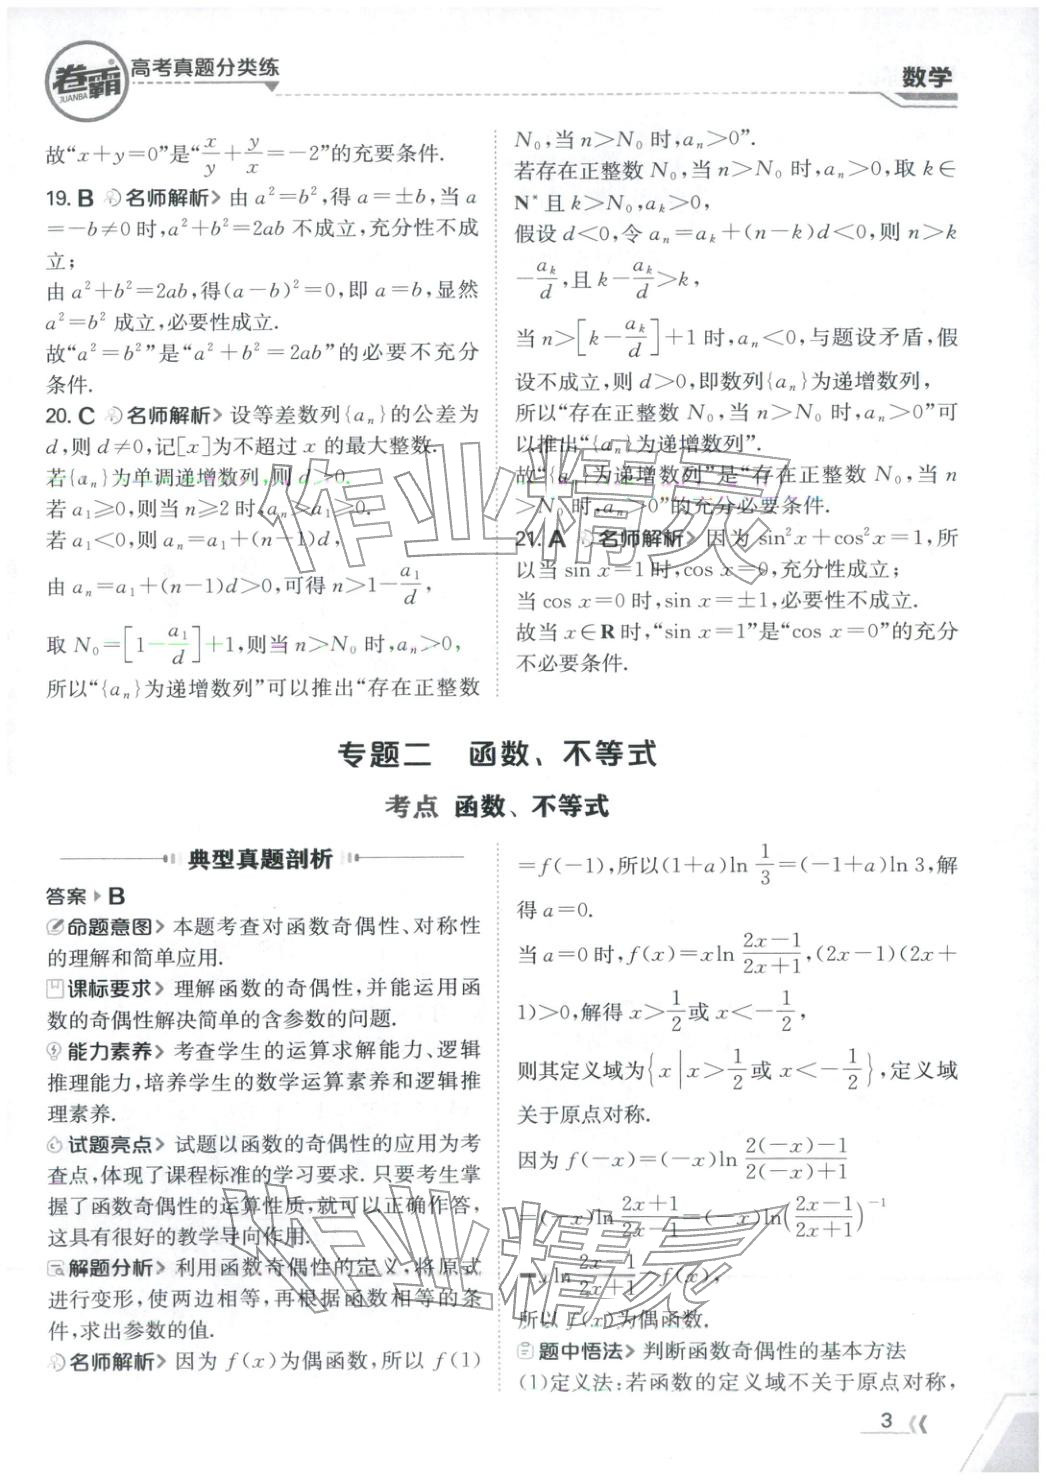 卷霸
JUANBA
高考真题分类练
数学
故“x+y=0”是“x/y+y/x=-2”的充要条件.
19. B 名师解析> 由 a²=b²,得 a=±b,当 a
=-b≠0 时,a²+b²=2ab 不成立,充分性不成
立;
由 a²+b²=2ab,得(a-b)²=0,即 a=b,显然
a²=b² 成立,必要性成立.
故“a²=b²”是“a²+b²=2ab”的必要不充分
条件.
20. C 名师解析> 设等差数列{aₙ}的公差为
d,则 d≠0,记[x]为不超过 x 的最大整数.
若{aₙ}为单调递增数列,则 d>0.
若 a₁≥0,则当 n≥2 时,aₙ>a₁≥0.
若 a₁<0,则 aₙ=a₁+(n-1)d,
由 aₙ=a₁+(n-1)d>0,可得 n>1-a₁/d,
取 N₀=[1-a₁/d]+1,则当 n>N₀ 时,aₙ>0,
所以“{aₙ}为递增数列”可以推出“存在正整数
N₀,当 n>N₀ 时,aₙ>0”.
若存在正整数 N₀,当 n>N₀ 时,aₙ>0,取 k∈
N* 且 k>N₀,aₖ>0,
假设 d<0,令 aₙ=aₖ+(n-k)d<0,则 n>k
-aₖ/d,且 k-aₖ/d>k,
当 n>[k-aₖ/d]+1 时,aₙ<0,与题设矛盾,假
设不成立,则 d>0,即数列{aₙ}为递增数列,
所以“存在正整数 N₀,当 n>N₀ 时,aₙ>0”可
以推出“{aₙ}为递增数列”.
故“{aₙ}为递增数列”是“存在正整数 N₀,当 n
>N₀ 时,aₙ>0”的充分必要条件.
21. A 名师解析> 因为 sin²x+cos²x=1,所
以当 sin x=1 时,cos x=0,充分性成立;
当 cos x=0 时,sin x=±1,必要性不成立.
故当 x∈R 时,“sin x=1”是“cos x=0”的充分
不必要条件.
专题二 函数、不等式
考点 函数、不等式
典型真题剖析
答案 B
命题意图> 本题考查对函数奇偶性、对称性
的理解和简单应用.
课标要求> 理解函数的奇偶性,并能运用函
数的奇偶性解决简单的含参数的问题.
能力素养> 考查学生的运算求解能力、逻辑
推理能力,培养学生的数学运算素养和逻辑推
理素养.
试题亮点> 试题以函数的奇偶性的应用为考
查点,体现了课程标准的学习要求. 只要考生掌
握了函数奇偶性的运算性质,就可以正确作答,
这具有很好的教学导向作用.
解题分析> 利用函数奇偶性的定义,将原式
进行变形,使两边相等,再根据函数相等的条
件,求出参数的值.
名师解析> 因为 f(x)为偶函数,所以 f(1)
=f(-1),所以(1+a)ln 1/3=(-1+a)ln 3,解
得 a=0.
当 a=0 时,f(x)=xln (2x-1)/(2x+1),(2x-1)(2x+
1)>0,解得 x>1/2 或 x<-1/2,
则其定义域为{x|x>1/2 或 x<-1/2},定义域
关于原点对称.
因为 f(-x)=(-x)ln (2(-x)-1)/(2(-x)+1)
=(-x)ln (2x+1)/(2x-1)=(-x)ln((2x-1)/(2x+1))⁻¹
=xln (2x-1)/(2x+1)=f(x),
所以 f(x)为偶函数.
题中悟法> 判断函数奇偶性的基本方法
(1)定义法:若函数的定义域不关于原点对称,
3
作业精灵
作业精灵